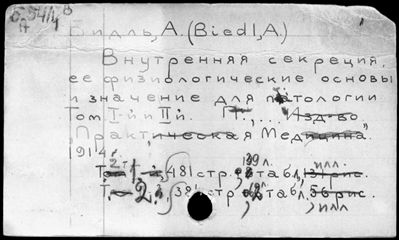 Бидль, А. (Biedl, A.)
Внутренняя секреция,
ее физиологические основы
и значение для патологии
Том I-й и II-й. П., Изд-во
"Практическая Медицина",
1914.
2 т.
481 стр., табл., илл.
Т. 2. 381 стр., табл., 56 рис.
илл